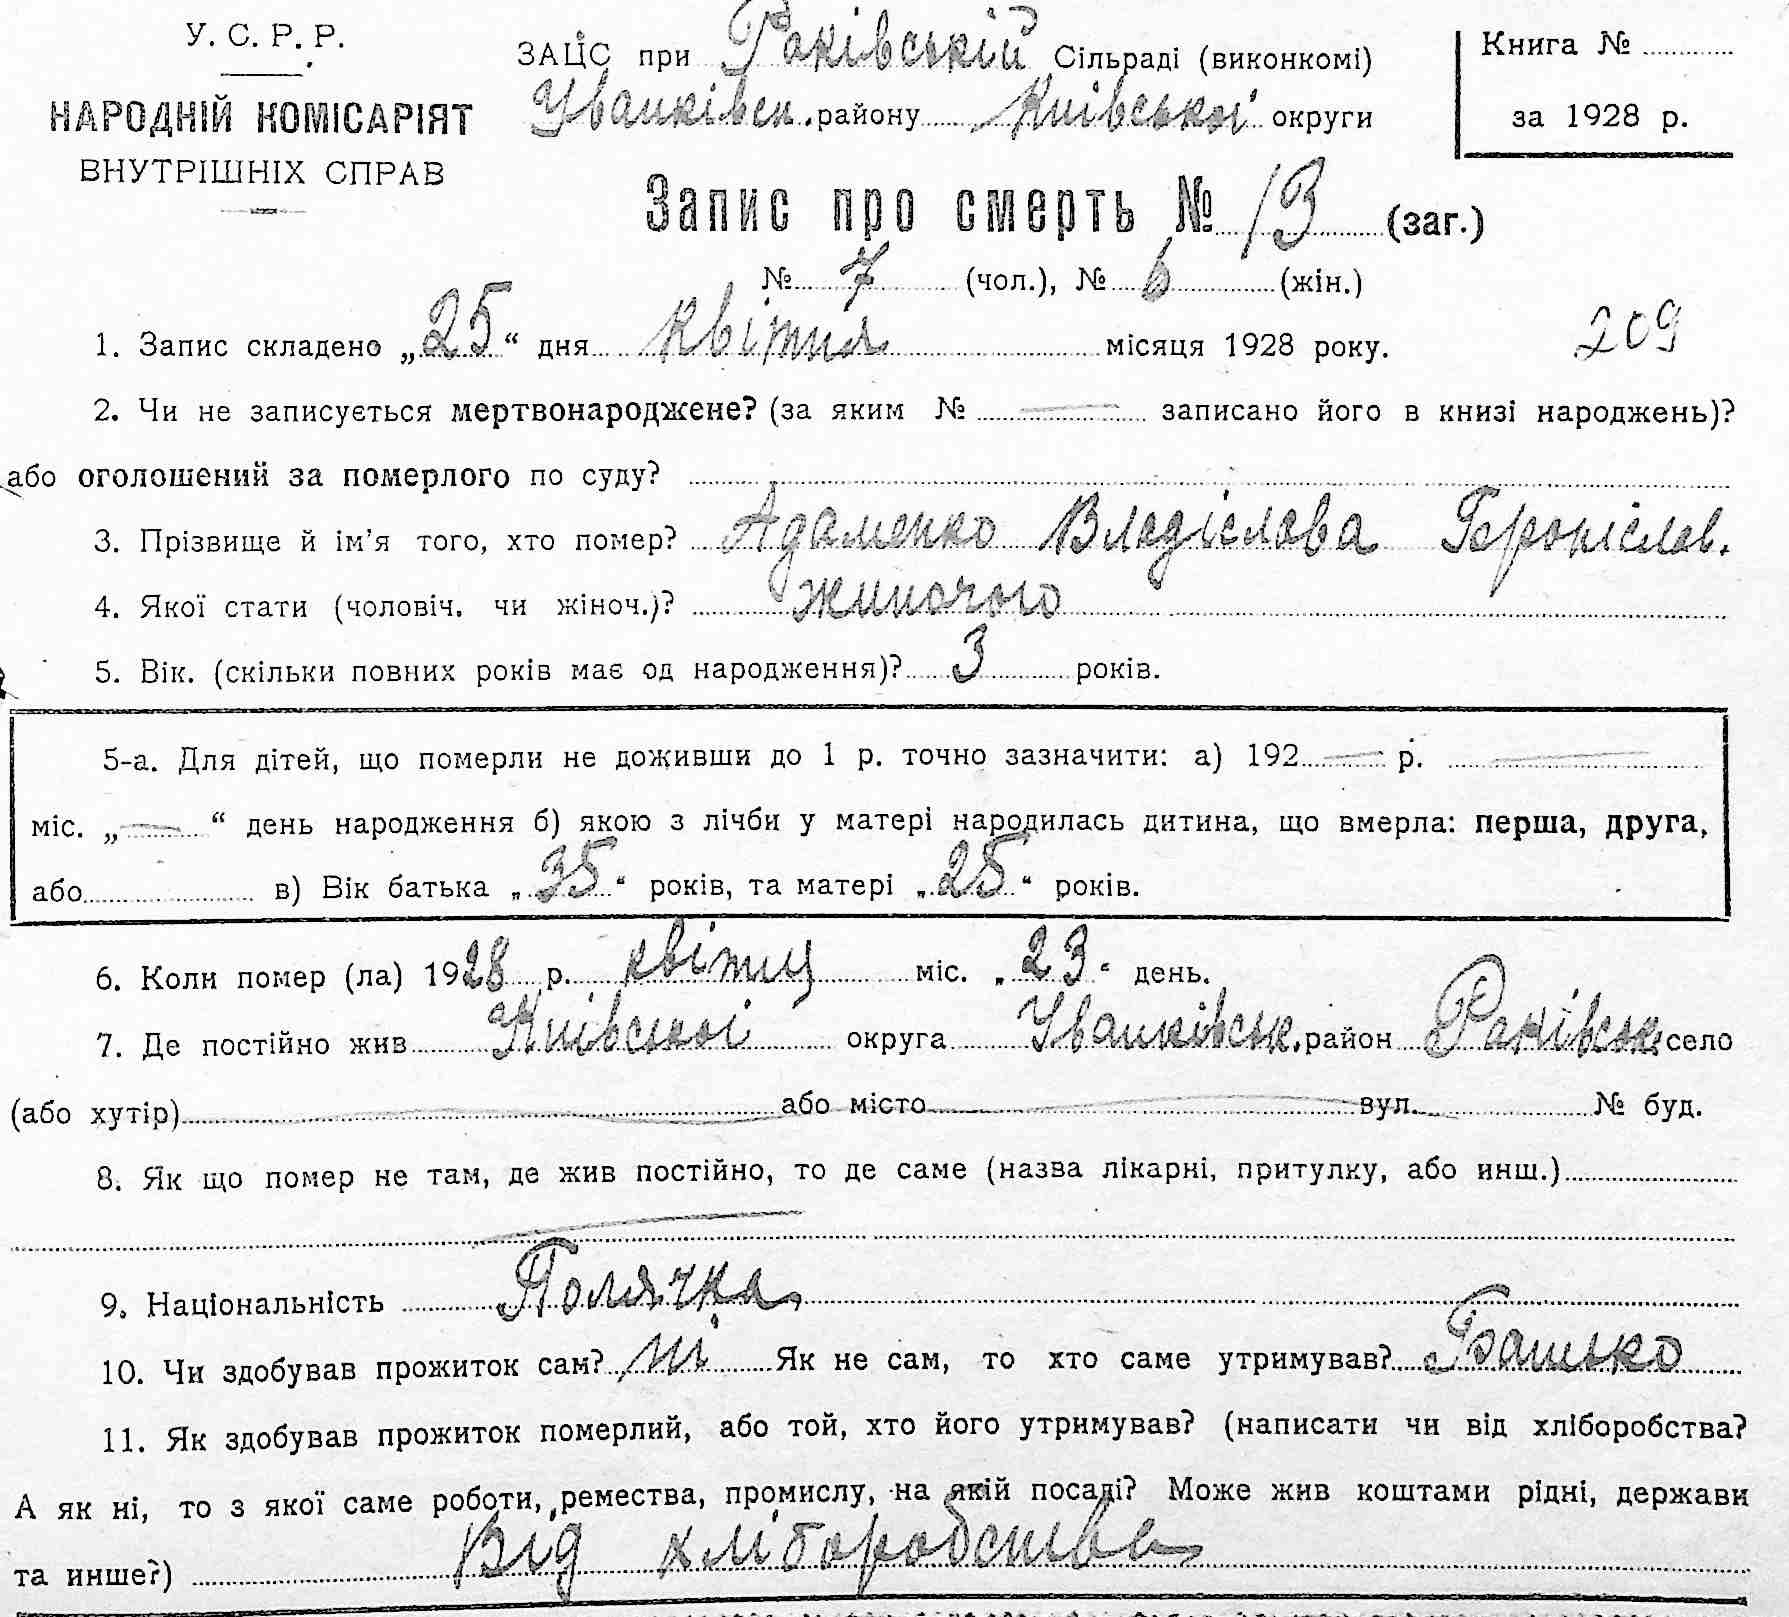 У. С. Р. Р.
НАРОДНІЙ КОМІСАРІЯТ
ВНУТРІШНІХ СПРАВ
ЗАЦС при Раківській Сільраді (виконкомі)
Уванківськ. району Київської округи
Книга №
за 1928 р.
Запис про смерть № 13 (заг.)
№ 7 (чол.), № 6 (жін.)
1. Запис складено „25“ дня квітня місяця 1928 року.
209
2. Чи не записується мертвонароджене? (за яким № — записано його в книзі народжень)?
або оголошений за померлого по суду?
3. Прізвище й ім'я того, хто помер? Адаменко Владіслава Броніслав.
4. Якої стати (чоловіч. чи жіноч.)? жиночого
5. Вік. (скільки повних років має од народження)? 3 років.
5-а. Для дітей, що померли не доживши до 1 р. точно зазначити: а) 192 — р. —
міс. „—“ день народження б) якою з лічби у матері народилась дитина, що вмерла: перша, друга,
або в) Вік батька „35“ років, та матері „25“ років.
6. Коли помер (ла) 1928 р. квітня міс. „23“ день.
7. Де постійно жив Київської округа Уванківськ. район Раківськ. село
(або хутір) — або місто — вул. № буд.
8. Як що помер не там, де жив постійно, то де саме (назва лікарні, притулку, або инш.)
—
9. Національність Полячка
10. Чи здобував прожиток сам? ні Як не сам, то хто саме утримував? Батько
11. Як здобував прожиток померлий, або той, хто його утримував? (написати чи від хліборобства?
А як ні, то з якої саме роботи, ремества, промислу, на якій посаді? Може жив коштами рідні, держави
та инше?) Від хліборобства